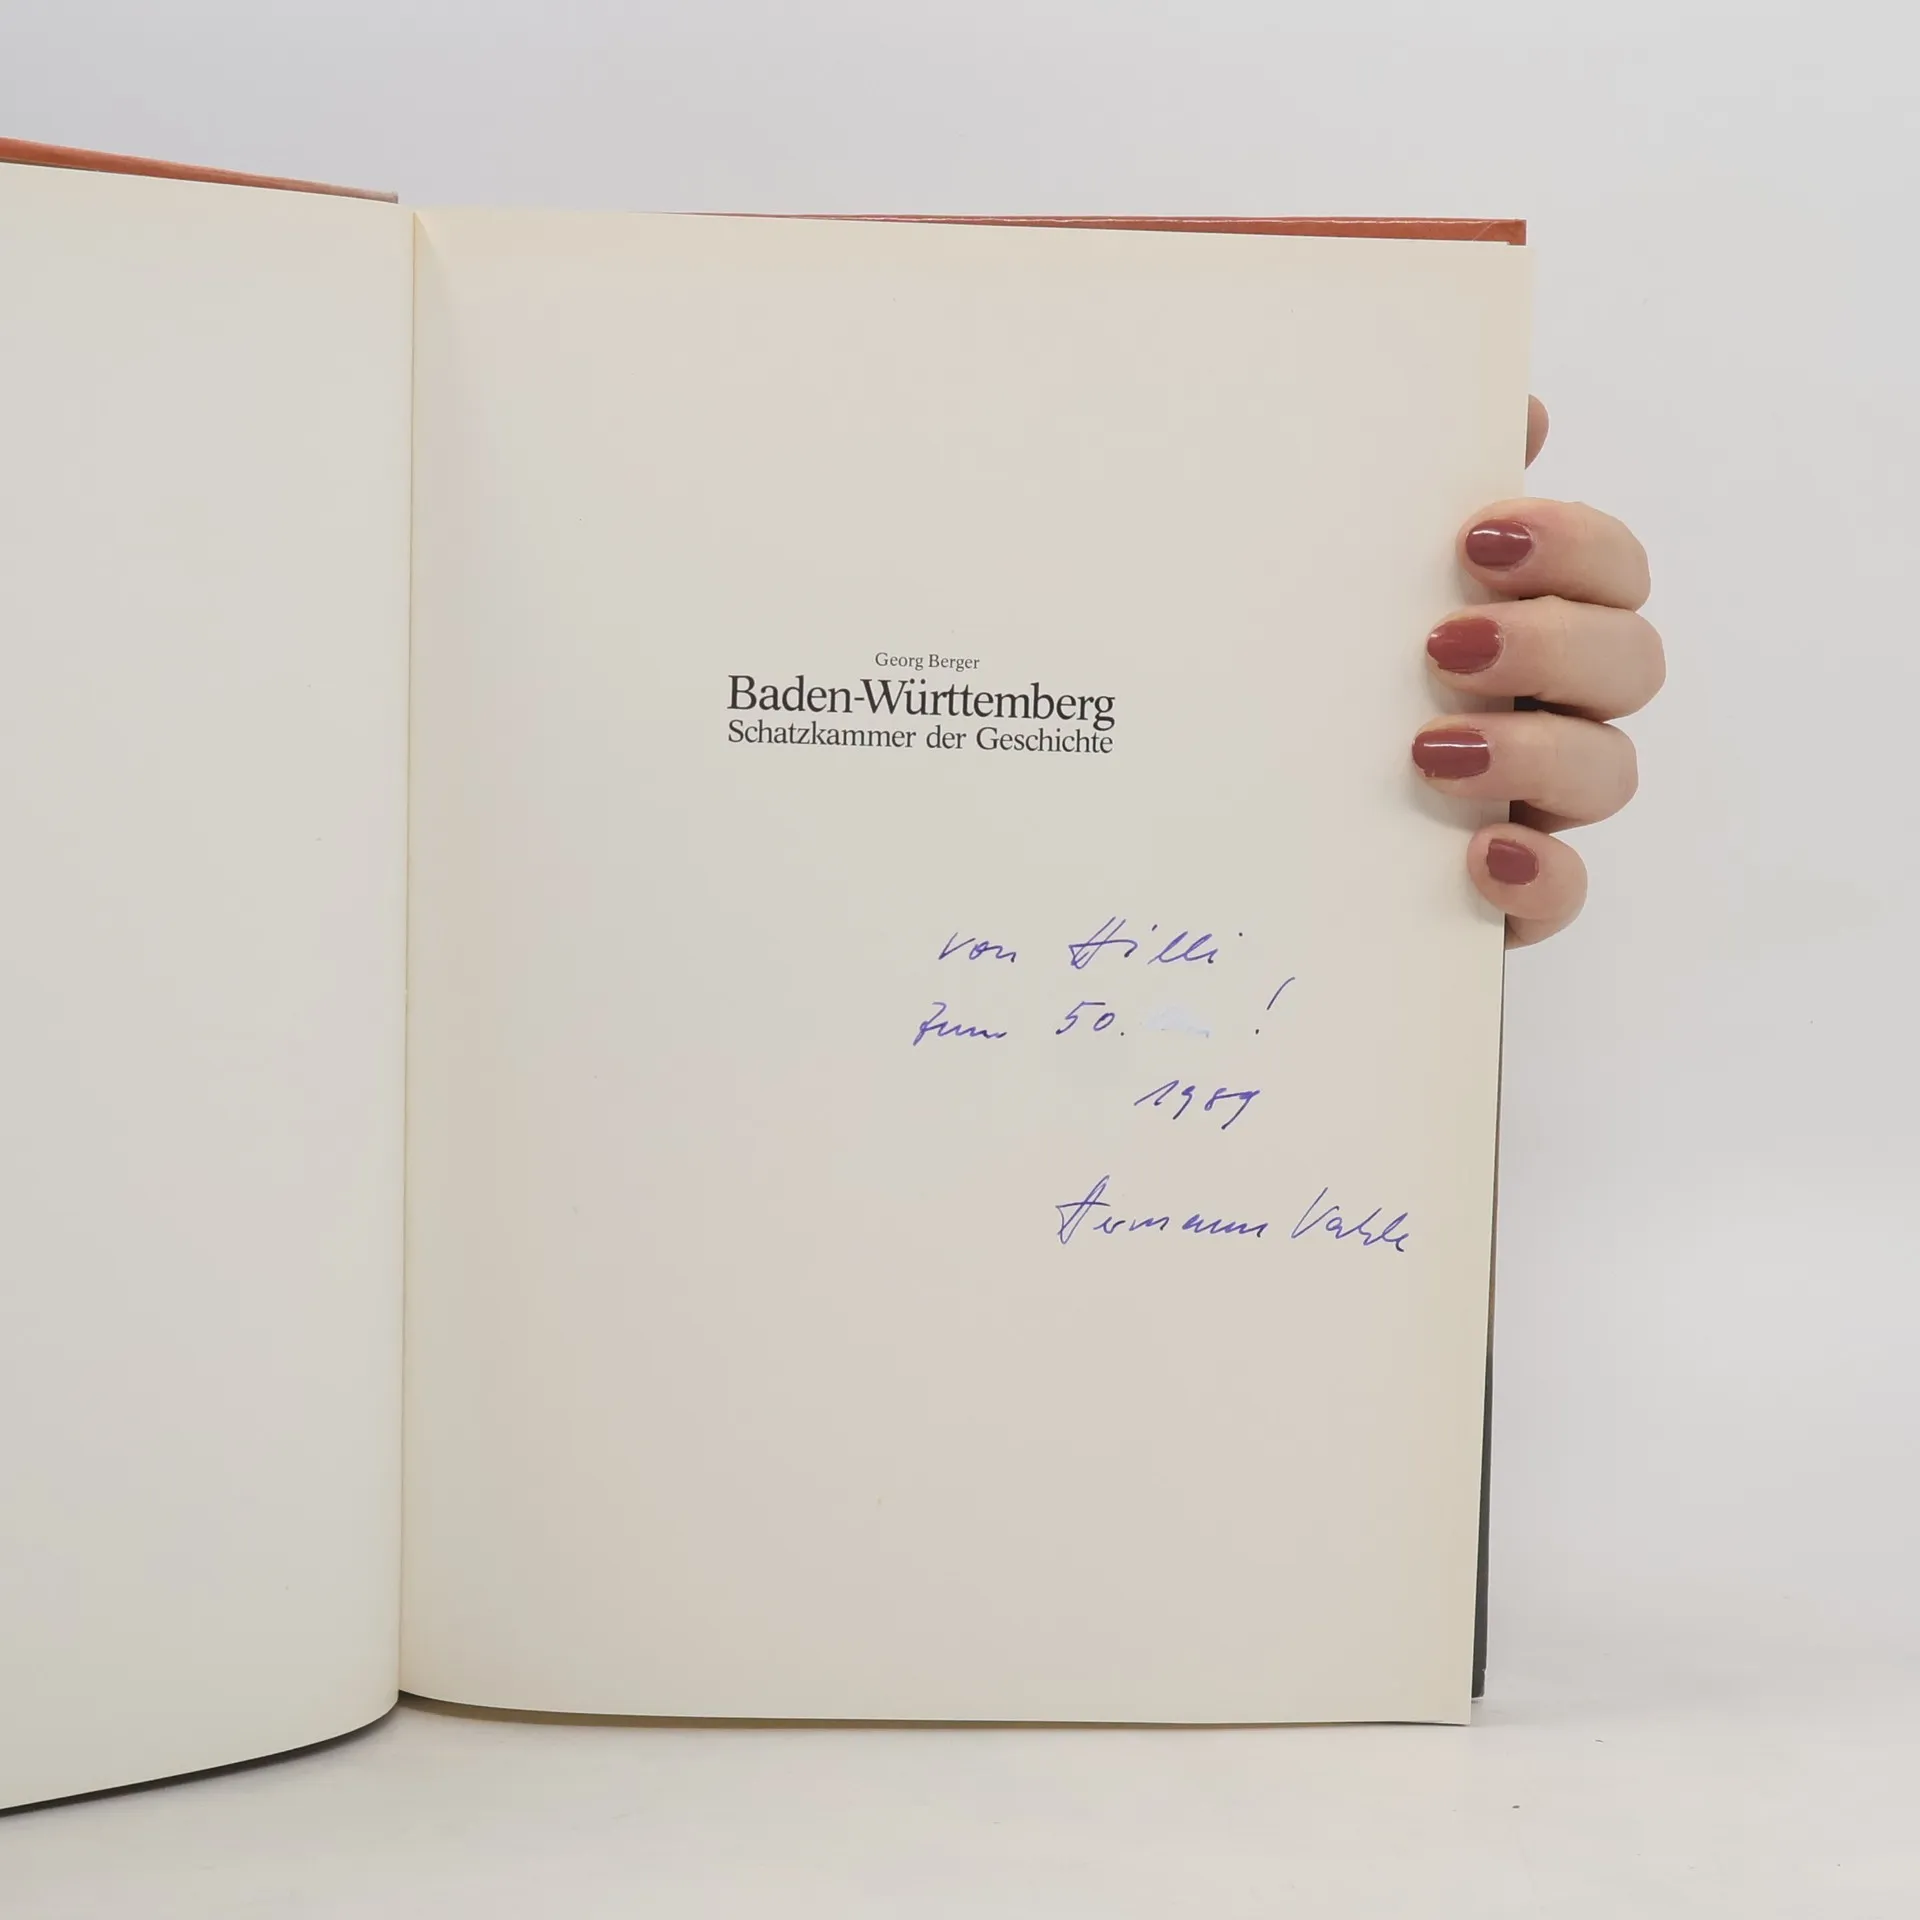 Georg Berger
Baden-Württemberg
Schatzkammer der Geschichte
von Hilli
zum 50. !
1989
Hermann